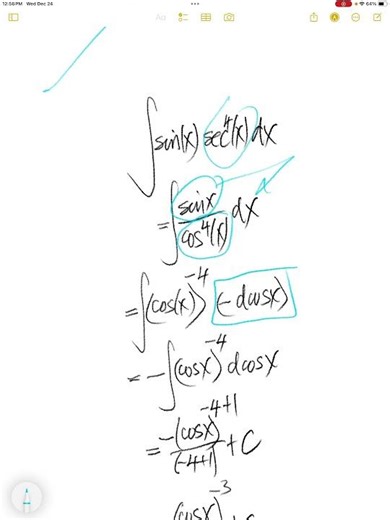 12:58PM Wed Dec 24
64%
Aa
∫ sin(x) sec⁴(x) dx
= ∫ sinx / cos⁴(x) dx
= ∫ (cos(x))⁻⁴ (-dcosx)
= -∫ (cosx)⁻⁴ dcosx
= -(cosx)⁻⁴⁺¹ / (-4+1) + C
(cosx)⁻³